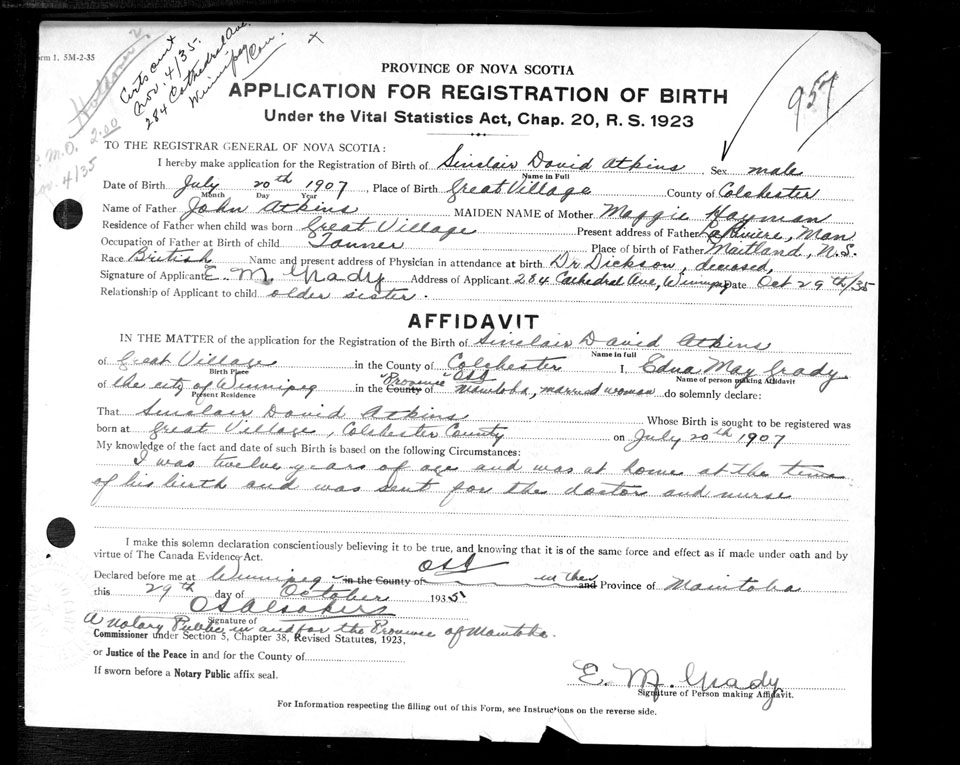 orm 1. 5M-2-35
Certs sent
Nov. 4/35.
284 Cathedral Ave.
Winnipeg
Man.
x
2.00
M.O.
4/35
957
PROVINCE OF NOVA SCOTIA
APPLICATION FOR REGISTRATION OF BIRTH
Under the Vital Statistics Act, Chap. 20, R. S. 1923
TO THE REGISTRAR GENERAL OF NOVA SCOTIA:
I hereby make application for the Registration of Birth of Sinclair David Atkins Sex male
Name in Full
Date of Birth July 20th 1907, Place of Birth Great Village County of Colchester
Month Day Year
Name of Father John Atkins MAIDEN NAME of Mother Maggie Hayman
Residence of Father when child was born Great Village Present address of Father La Riviere, Man
Occupation of Father at Birth of child Tanner Place of birth of Father Maitland, N.S.
Race British Name and present address of Physician in attendance at birth Dr Dickson, deceased,
Signature of Applicant E. M. Grady Address of Applicant 284 Cathedral Ave, Winnipeg Date Oct 29th/35
Relationship of Applicant to child older sister.
AFFIDAVIT
IN THE MATTER of the application for the Registration of the Birth of Sinclair David Atkins
Name in full
of Great Village in the County of Colchester I, Edna May Grady
Birth Place Name of person making Affidavit
of the city of Winnipeg in the County Province of Manitoba, married woman do solemnly declare:
Present Residence
That Sinclair David Atkins Whose Birth is sought to be registered was
born at Great Village, Colchester County on July 20th 1907
My knowledge of the fact and date of such Birth is based on the following Circumstances:
I was twelve years of age and was at home at the time
of his birth and was sent for the doctor and nurse
I make this solemn declaration conscientiously believing it to be true, and knowing that it is of the same force and effect as if made under oath and by
virtue of The Canada Evidence Act.
Declared before me at Winnipeg in the County of in the and Province of Manitoba
this 29th day of October 1935
Signature of
A Notary Public in and for the Province of Manitoba.
Commissioner under Section 5, Chapter 38, Revised Statutes, 1923,
or Justice of the Peace in and for the County of
If sworn before a Notary Public affix seal.
E. M. Grady
Signature of Person making Affidavit.
For Information respecting the filling out of this Form, see Instructions on the reverse side.